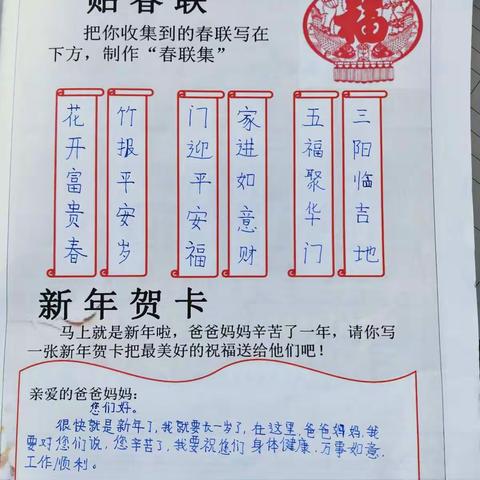 贴春联
把你收集到的春联写在
下方，制作“春联集”
福
三阳临吉地
五福聚华门
家进如意财
门迎平安福
竹报平安岁
花开富贵春
新年贺卡
马上就是新年啦，爸爸妈妈辛苦了一年，请你写
一张新年贺卡把最美好的祝福送给他们吧！
亲爱的爸爸妈妈：
您们好。
很快就是新年了，我就要长一岁了，在这里，爸爸妈妈，我
要对您们说，您辛苦了，我要祝您们身体健康、万事如意、
工作顺利。